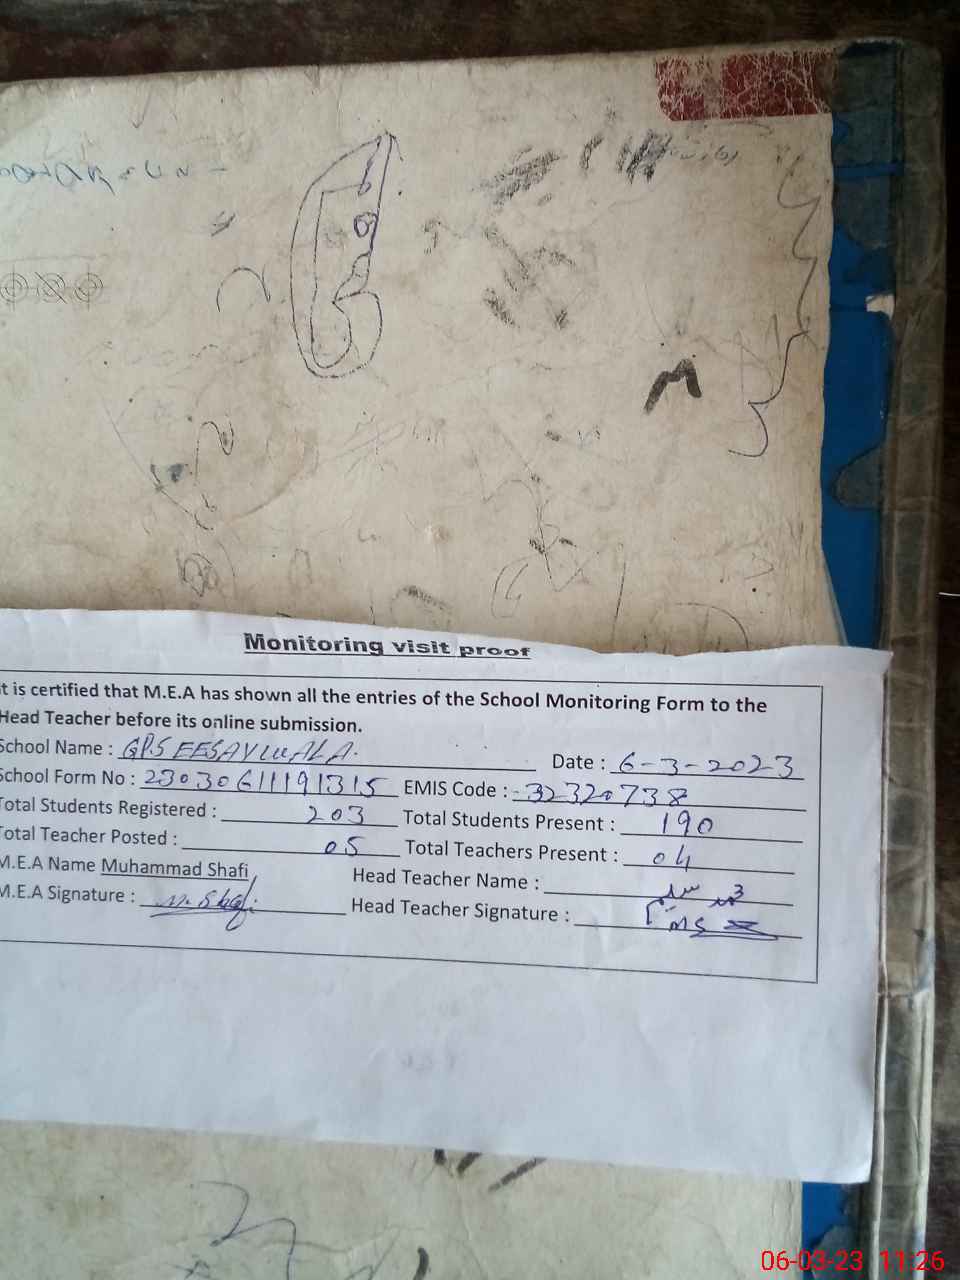 Monitoring visit proof
t is certified that M.E.A has shown all the entries of the School Monitoring Form to the
Head Teacher before its online submission.
School Name : GPS EESAYWALA. Date : 6-3-2023
School Form No : 23030611191315 EMIS Code : 32320738
Total Students Registered : 203 Total Students Present : 190
Total Teacher Posted : 05 Total Teachers Present : 04
M.E.A Name Muhammad Shafi Head Teacher Name :
M.E.A Signature : M. Shafi Head Teacher Signature :
06-03-23 11:26